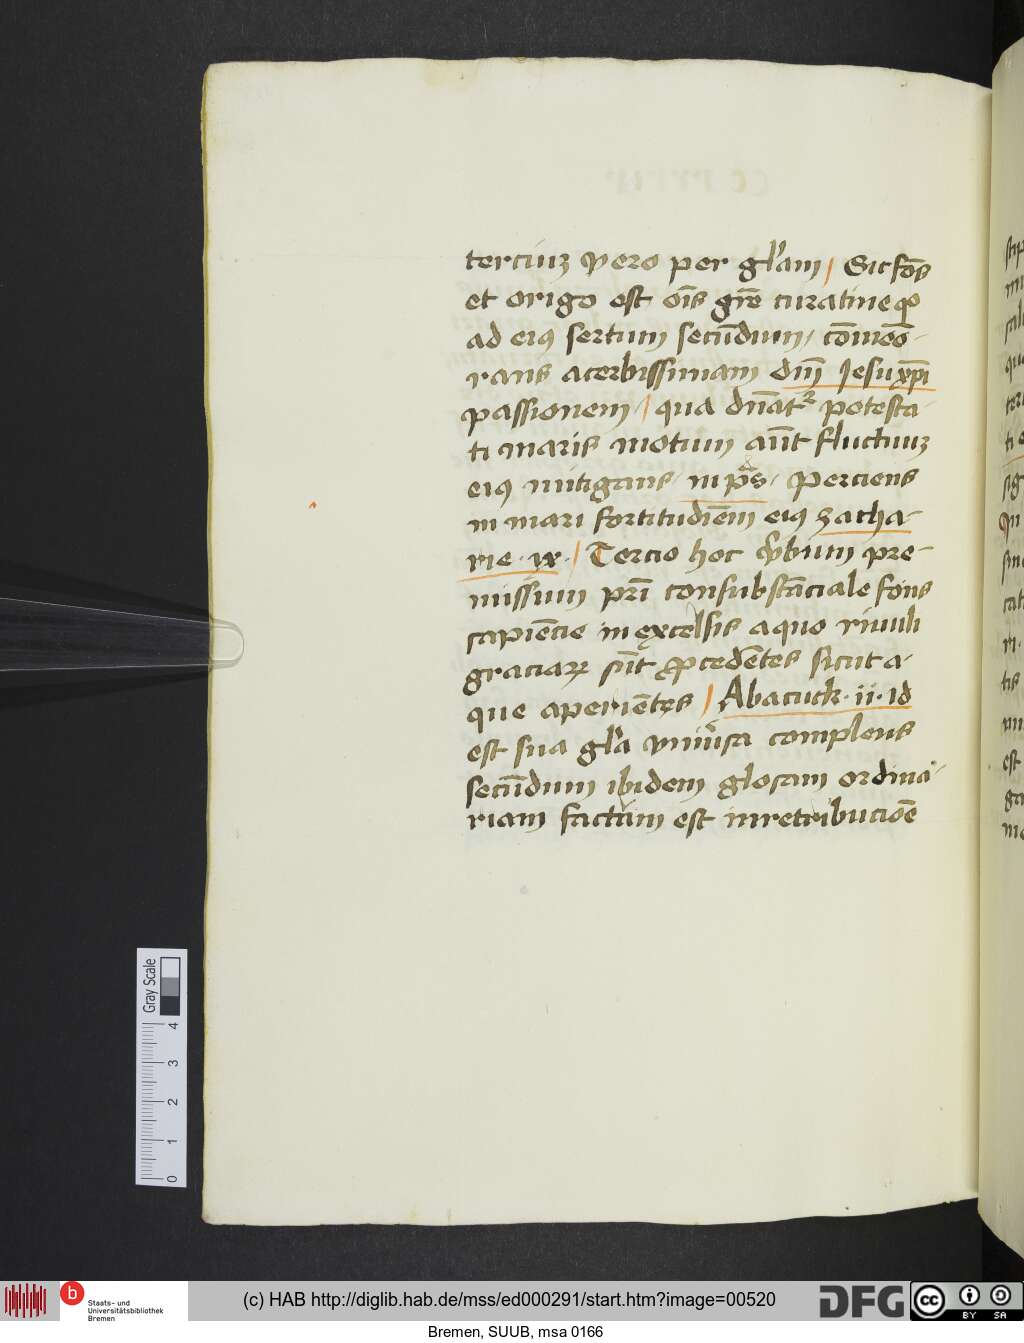 terciuʒ vero per gl'am / Sic fōs
et origo est oīs grē curatiueqꝫ
ad eiꝰ sertum secūdum / cōmeō-
rans acerbissimam dnī Jesu xp̄i
passionem / qua dn̄atᷣ potesta-
ti maris motum aūt fluctuuʒ
eiꝰ mitigans in ps̄ · Perciens
in mari fortitudiēm eiꝰ zacha-
rie · ix · / Tercio hoc v̓bum pre-
missum prī consubstāciale fons
sapiēcie in excelsis a quo riuuli
graciaꝝ sūt ꝓcedētes sicut a-
que aperiētes / Abacuck · ii · id
est sua gl'a vniu'sa complens
secūdum ibidem glosam ordina-
riam factum est in retribucioē
Gray Scale
0 1 2 3 4
b Staats- und
Universitätsbibliothek
Bremen
(c) HAB http://diglib.hab.de/mss/ed000291/start.htm?image=00520
DFG cc BY SA
Bremen, SUUB, msa 0166